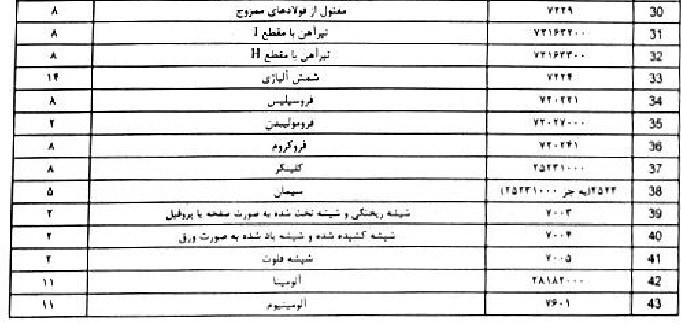 30 ۷۲۲۹ مفتول از فولادهای ممزوج ۸
31 ۷۲۱۶۳۲۰۰۰ تیرآهن با مقطع I ۸
32 ۷۲۱۶۳۳۰۰ تیرآهن با مقطع H ۸
33 ۷۲۲۴ شمش آلیاژی ۱۴
34 ۷۲۰۲۲۱ فروسیلیس ۸
35 ۷۲۰۲۷۰۰۰ فرومولیبدن ۲
36 ۷۲۰۲۴۱ فروکروم ۸
37 ۲۵۲۳۱۰۰۰ کلینکر ۸
38 ۲۵۲۳(به جز ۲۵۲۳۱۰۰۰) سیمان ۵
39 ۷۰۰۳ شیشه ریختگی و شیشه تخت شده به صورت صفحه یا پروفیل ۲
40 ۷۰۰۴ شیشه کشیده شده و شیشه باد شده به صورت ورق ۲
41 ۷۰۰۵ شیشه فلوت ۲
42 ۲۸۱۸۲۰۰۰ آلومینا ۱۱
43 ۷۶۰۱ آلومینیوم ۱۱